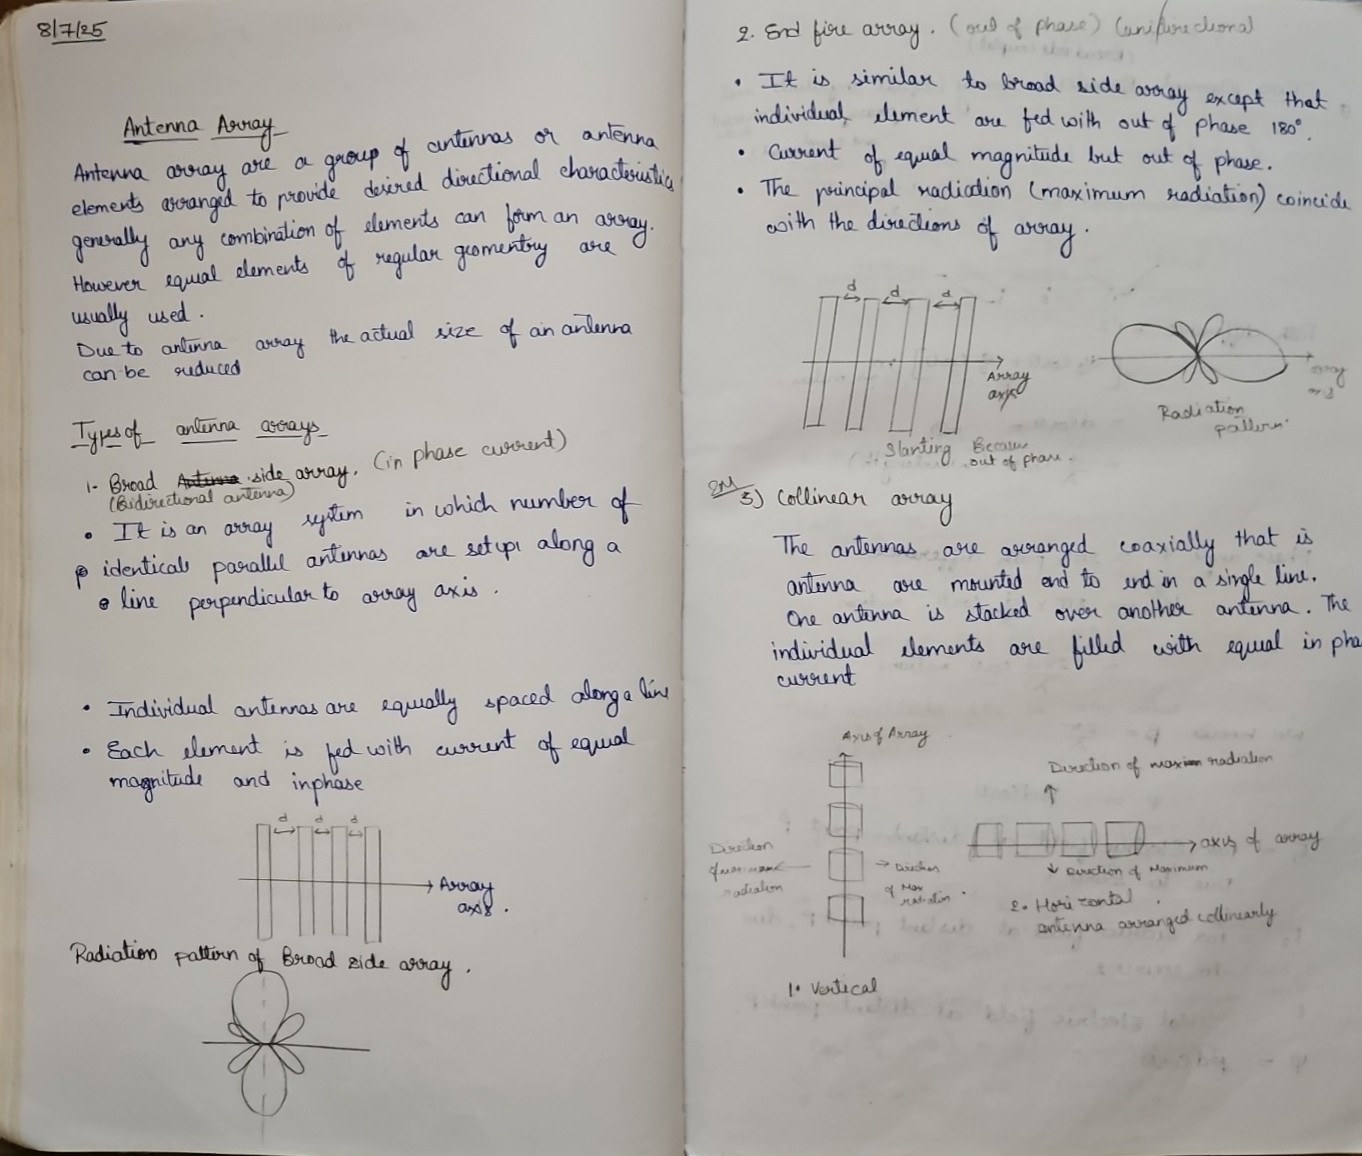 8/7/25
Antenna Array
Antenna array are a group of antennas or antenna
elements arranged to provide desired directional characteristics
generally any combination of elements can form an array.
However equal elements of regular geomentry are
usually used.
Due to antenna array the actual size of an antenna
can be reduced
Types of antenna arrays
1- Broad Antenna side array. (in phase current)
(Bidirectional antenna)
• It is an array system in which number of
identical parallel antennas are set up along a
line perpendicular to array axis.
• Individual antennas are equally spaced along a line
• Each element is fed with current of equal
magnitude and inphase
d d d
Array
axis.
Radiation pattern of Broad side array.
2. End fire array. (out of phase) (unidirectional)
• It is similar to broad side array except that
individual element are fed with out of phase 180°.
• Current of equal magnitude but out of phase.
• The principal radiation (maximum radiation) coincide
with the directions of array.
d d d
Array
axis
array
axis
Radiation
pattern.
Slanting Because
out of phase.
2M
3) Collinear array
The antennas are arranged coaxially that is
antenna are mounted end to end in a single line.
One antenna is stacked over another antenna. The
individual elements are filled with equal in pha
current
Axis of Array
Direction of maximum radiation
Direction
of maximum
radiation
Direction
of Max
radiation.
axis of array
Direction of Maximum
2. Horizontal.
antenna arranged collinearly
1. Vertical